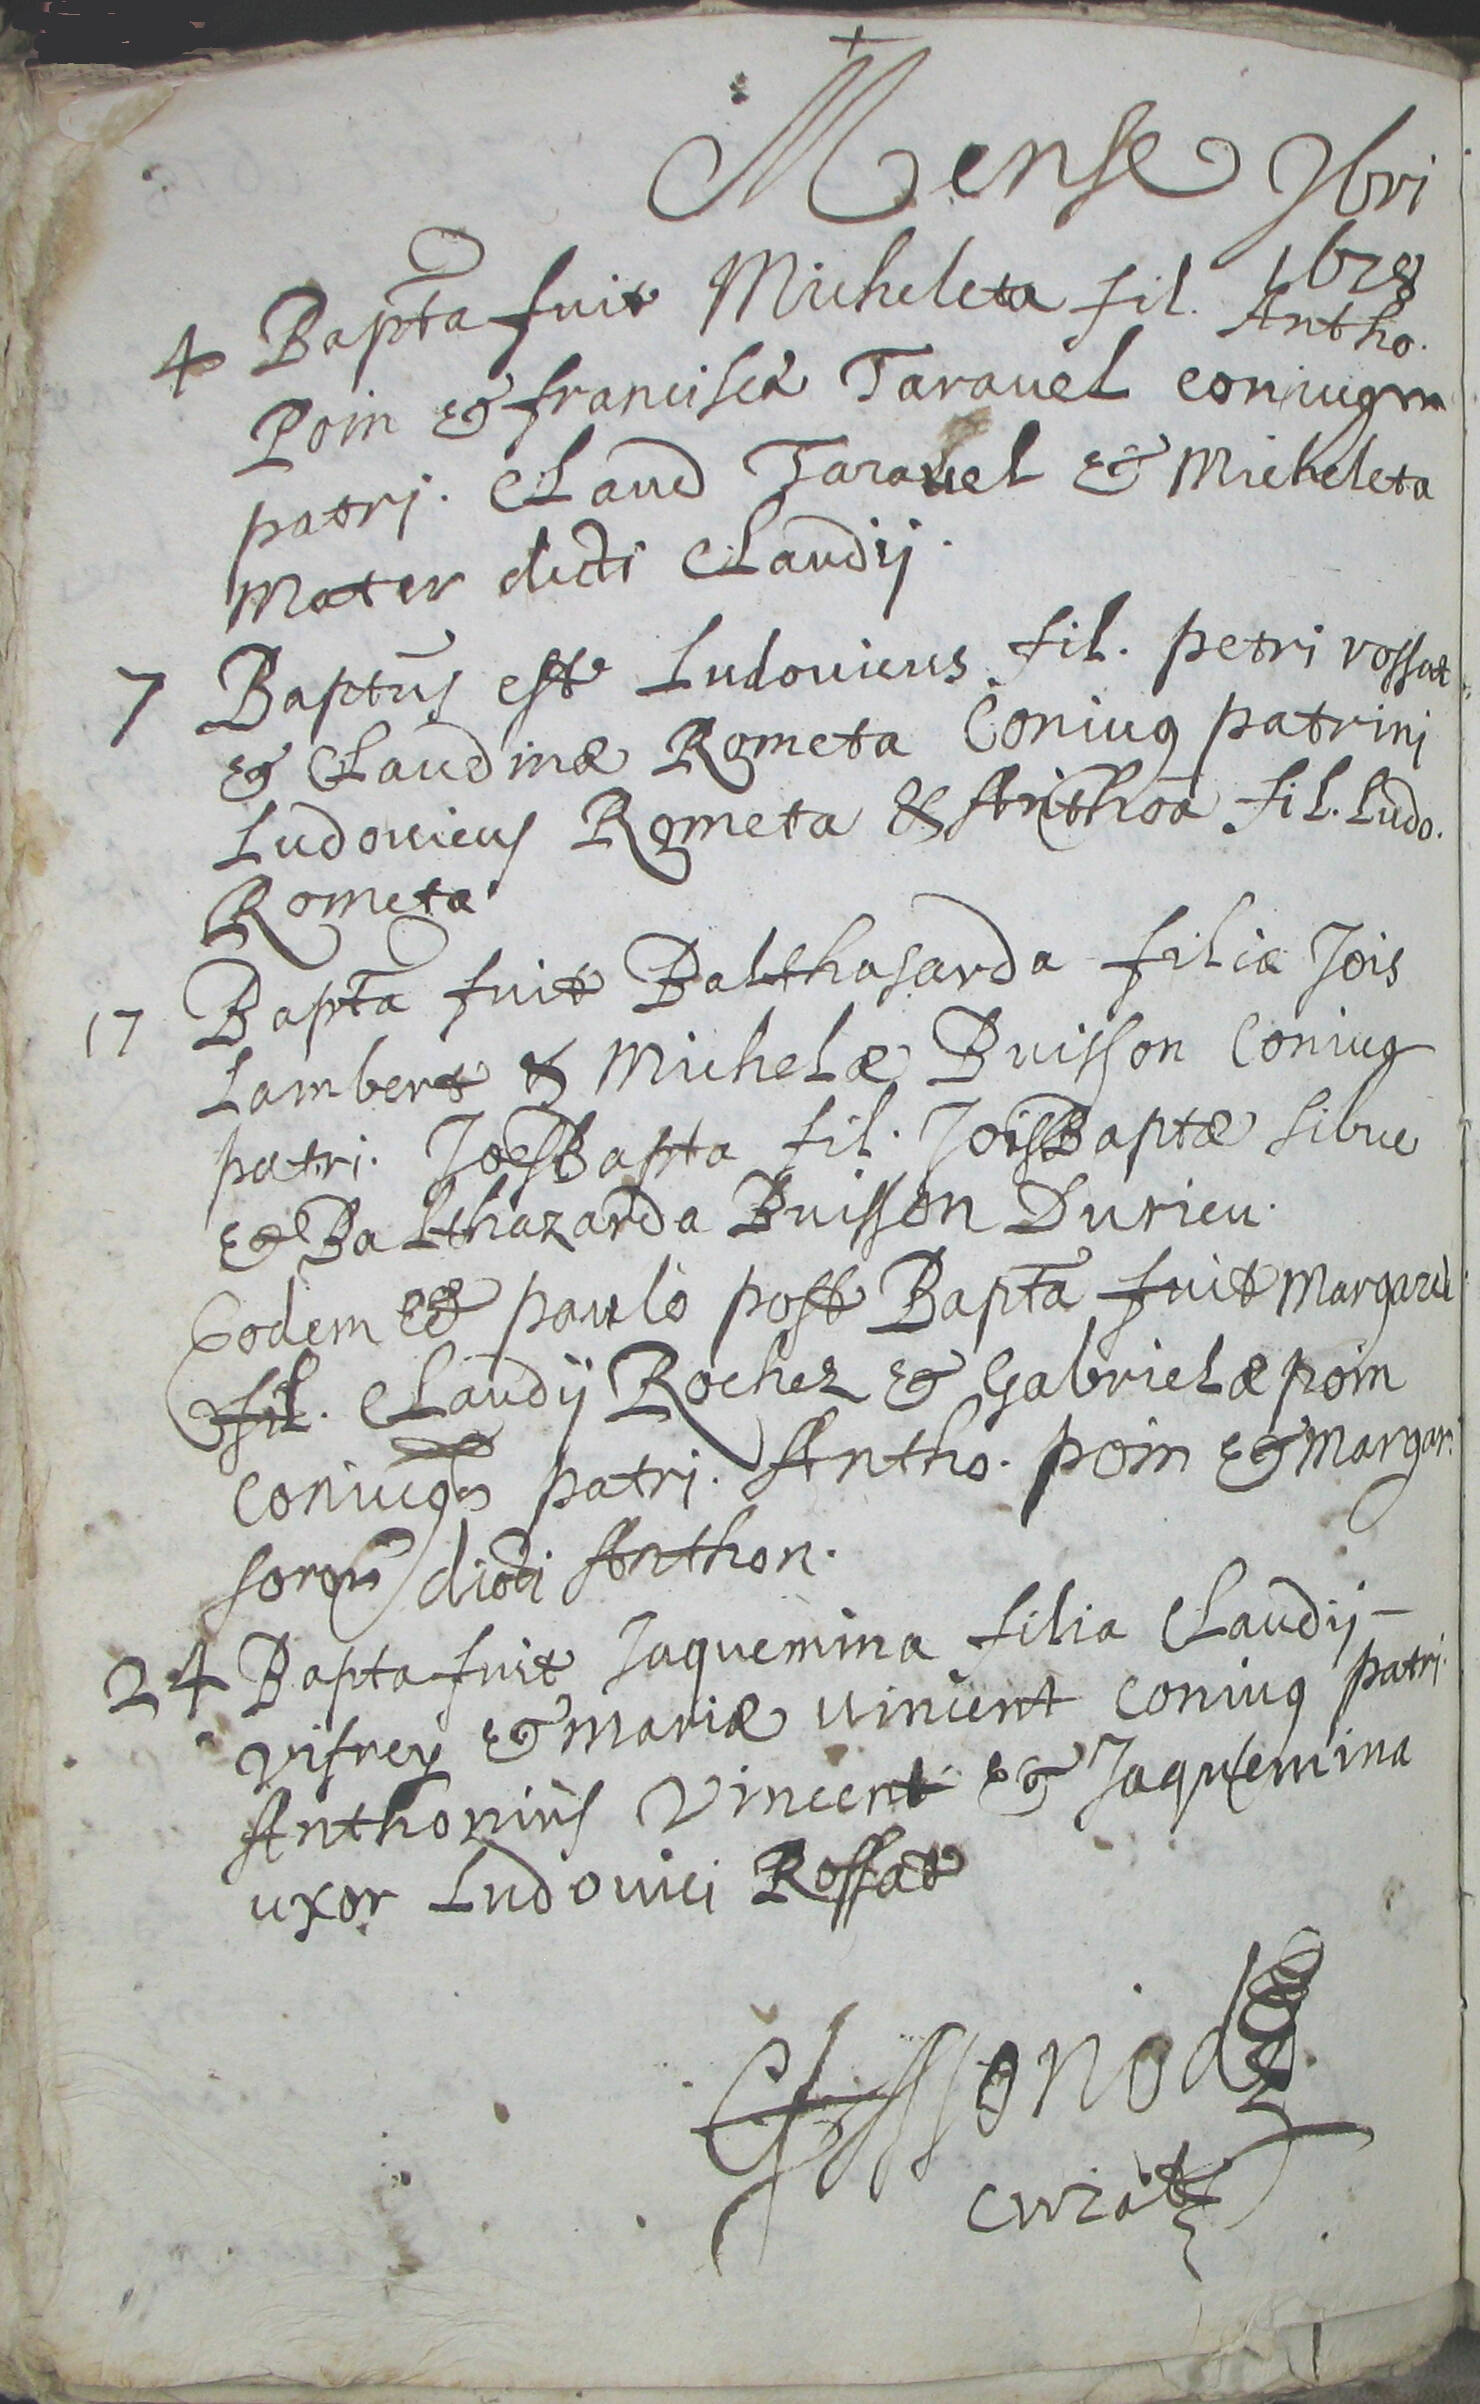 Mense 9bri
1628
4 Bapta fuit Micheleta fil. Antho.
Poin & franciscæ Tarauel coniugm
patrj. Claud Tarauel & Micheleta
Mater dicti Claudij.
7 Baptus est Ludouicus fil. petri rossat
& Claudinæ Rometa Coniug patrinj
Ludouicus Rometa & Anthoa fil. Ludo.
Rometa
17 Bapta fuit Balthasarda filia Jois
Lambert & Michelæ Buisson Coniug
patri. JoesBapta fil. JoisBaptæ siluе
& Balthazarda Buisson Durieu.
Eodem & paulo post Bapta fuit Margari
fil. Claudij Rochez & Gabrielæ poin
Coniug patrj. Antho. poin & Margar.
soror dicti Anthon.
24 Bapta fuit Jaquemina filia Claudij
Vifrey & Mariæ Vincent Coniug patri.
Anthonius Vincent & Jaquemina
uxor Ludouici Rossat
curat